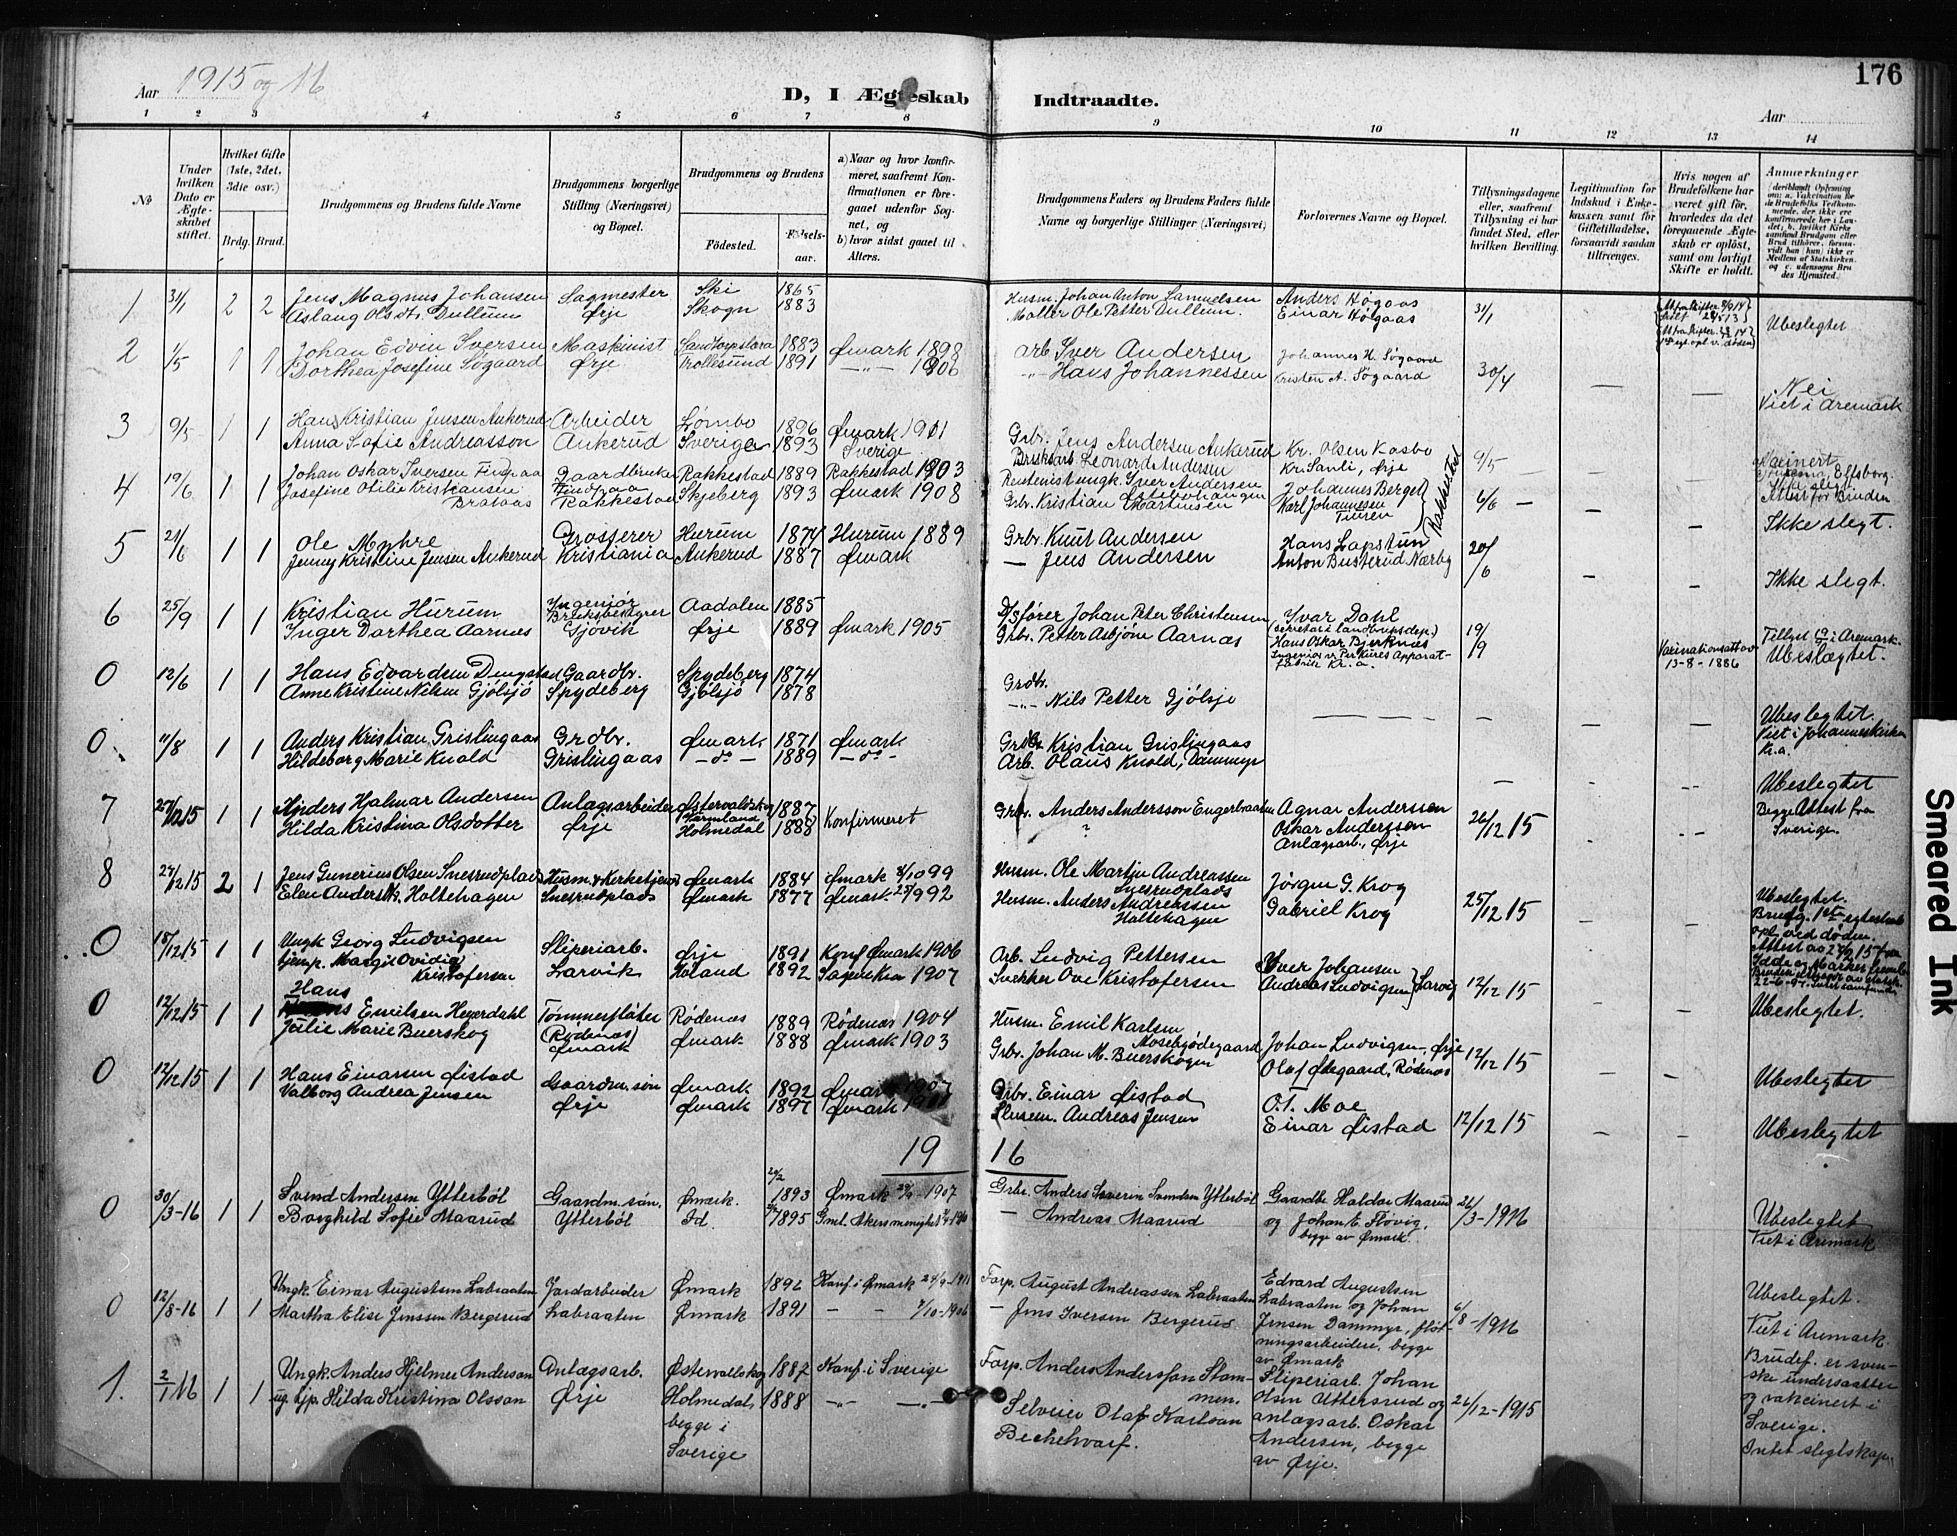 Aar 1915 og 16
D, I Ægteskab Indtraadte.
176
Aar
1 2 3 4 5 6 7 8 9 10 11 12 13 14
No
Under hvilken Dato er Ægteskabet stiftet.
Hvilket Gifte (1ste, 2det, 3die osv.)
Brdg. Brud.
Brudgommens og Brudens fulde Navne
Brudgommens borgerlige Stilling (Næringsvei) og Bopæl.
Brudgommens og Brudens
Fødested.
Fødselsaar.
a) Naar og hvor konfirmeret, saafremt Konfirmationen er foregaaet udenfor Sognet, og
b) hvor sidst gaaet til Alters.
Brudgommens Faders og Brudens Faders fulde Navne og borgerlige Stillinger (Næringsvei)
Forlovernes Navne og Bopæl.
Tillysningsdagene eller, saafremt Tillysning ei har fundet Sted, efter hvilken Bevilling.
Legitimation for Indskud i Enkekassen samt for Giftetilladelse, forsaavidt saadan tiltrænges.
Hvis nogen af Brudefolkene har været gift før, hvorledes da det foregaaende Ægteskab er opløst, samt om lovligt Skifte er holdt.
Anmerkninger
1 31/1 2 2 Jens Magnus Johansen Sagmester Ski 1865 Husm. Johan Anton Samuelsen Anders Høgaas 31/1
Aslaug Olsdtr. Dullum Ørje Skogn 1883 Møller Ole Petter Dullum. Einar Høgaas Ubeslegtet
2 1/5 1 1 Johan Edvin Iversen Maskinist 1883 Ømark 1898 Arb. Iver Andersen Johannes H. Søgaard 30/4
Dorthea Josefine Søgaard Ørje Trollesund 1891 -"- 1906 -"- Hans Johannessen Kristen A. Søgaard Nei
Viet i Aremark
3 9/5 1 1 Hans Kristian Jensen Ankerud Arbeider Lømbo 1896 Ømark 1911 Grbr. Jens Andersen Ankerud Kr. Olsen Kasbo 9/5
Anna Sofie Andreasson Ankerud Sverige 1893 Sverige Leonard Andersen Kr. Sanli, Ørje
4 19/6 1 1 Johan Oskar Iversen Gaardbruker Rakkestad 1889 Rakkestad 1903 Iver Andersen Johannes Berget 6/6
Josefine Otilie Kristiansen Rakkestad Skjeberg 1893 Ømark 1908 Grbr. Kristian Martinsen Karl Johannessen Rakkestad
Attest for Bruden
Ikke slegt.
5 21/6 1 1 Ole Myhre Grosserer Hurum 1874 Hurum 1889 Grbr. Knut Andersen Hans Lapstun 20/6
Jenny Kristine Jensen Ankerud Kristiania Ankerud 1887 Ømark — Jens Andersen Anton Busterud Nærby
Ikke slegt.
6 25/9 1 1 Kristian Hurum Ingeniør Aadalen 1885 Johan Peter Christensen Yvar Dahl
Inger Dorthea Aarnes Gjøvik Ørje 1889 Ømark 1905 Grbr. Petter Asbjørn Aarnæs Hans Oskar Bjerknæs 19/9
13-8-1886
Ubeslægtet.
0 12/6 1 1 Hans Edvardsen Dingstad Gaardbr. Spydeberg 1874 Grdbr.
Anne Kristine Nilsen Gjølsjø Spydeberg Gjølsjø 1878 -"- Nils Petter Gjølsjø
Ubeslegtet.
Viet i Johanneskirken Kr.a.
0 11/8 1 1 Anders Kristian Grislingaas Grdbr. Ømark 1871 Ømark Grdbr Kristian Grislingaas
Hildeborg Marie Knold Grislingaas -do- 1889 -do- Arb. Olaus Knold, Dammyr
Ubeslegtet
7 27/12 15 1 1 Anders Hjalmar Andersen Anlægsarbeider Østervalskog 1887 Konfirmeret Grbr. Anders Andersson Engerbraaten Agnar Andersson 26/12 15
Hilda Kristina Olsdotter Ørje Holmedal 1888 ? Oskar Anderssen
Anlægsarb., Ørje
Begge Attest fra Sverige.
8 27/12 15 2 1 Jens Gunerius Olsen Snesrudplads Husm. & Kirketjener Ømark 1884 Ømark 8/10 99 Husm. Ole Martin Andreassen Snesrudplads Jørgen G. Krog 25/12 15
Elen Andersdtr. Holtehagen Snesrudplads Ømark 1877 Ømark 25/9 92 Husm. Anders Andreassen Holtehagen Gabriel Krog
Ubeslegtet.
0 18/12 15 1 1 Ungk Georg Ludvigsen Sliperiarb. Ørje 1891 Konf Ømark 1906 Arb. Ludvig Pettersen Iver Johansen 12/12 15
Margit Ovidia Kristofersen Larvik Høland 1892 1907 Snekker Ove Kristofersen Andreas Ludvigsen Larvig
0 12/12 15 1 1 Hans Emilsen Heyerdahl Tømmerfløter Rødenæs 1889 Rødenæs 1904 Husm. Emil Karlsen Mosebyødegaard Johan Ludvigsen, Ørje 12/12 15 Ubeslegtet.
Julie Marie Buerskog (Rødenæs) Ømark Ømark 1888 Ømark 1903 Grbr. Johan M. Buerskogen Olaf Ødegaard, Rødenæs
0 12/12 15 1 1 Hans Einarsen Øistad Gaardm. søn Ømark 1892 Ømark 1907 Grbr. Einar Øistad O.T. Moe Ubeslegtet
Valborg Andrea Jensen Ørje Ømark 1897 Ømark Slusem. Andreas Jensen Einar Øistad 12/12 15
Ubeslegtet
19 16
0 30/3-16 1 1 Svend Andersen Ytterbøl Gaardm. søn, Ømark. 1893 Ømark 1907 Grbr. Anders Severin Svendsen Ytterbøl Gaardbr. Haldor Maarud 26/3-1916
Borghild Sofie Maarud Ytterbøl Id. 1895 Gml. Akers menighet — Andreas Maarud og Johan E. Fløvig,
begge av Ømark.
Ubeslegtet
Viet i Aremark
0 12/8-16 1 1 Ungk. Einar Augustsen Labraaten Jordarbeider Ømark 1892 Konf. i Ømark 24/9-1911 Forp. August Andreassen Labraaten Edvard Augustsen
Martha Elise Jenssen Bergerud Labraaten Ømark 1891 — — 7/10-1906 — Jens Iversen Bergerud Labraaten og Johan 6/8-1916
Jensen Dammyr, fløtningsarbeidere, begge av Ømark
Ubeslegtet.
Viet i Aremark.
1. 2/1 16 1 1 Ungk. Anders Hjelmer Anderson Anlægsarb. Østervalskog 1887 Konf. i Sverige Forp. Anders Andersson Stommen. Sliperiarb. Johan
Hilda Kristina Olsson Ørje Holmedal, 1888 -"- Olaf Karlson Olsen Uttersrud og 26/12-1915
begge i Sverige Bechehvarf. anlægsarb. Oskar
Andersen, begge av Ørje.
Brudef. er svenske undersaatter og vakcinert i Sverige.
Intet slegtskap.
Smeared Ink